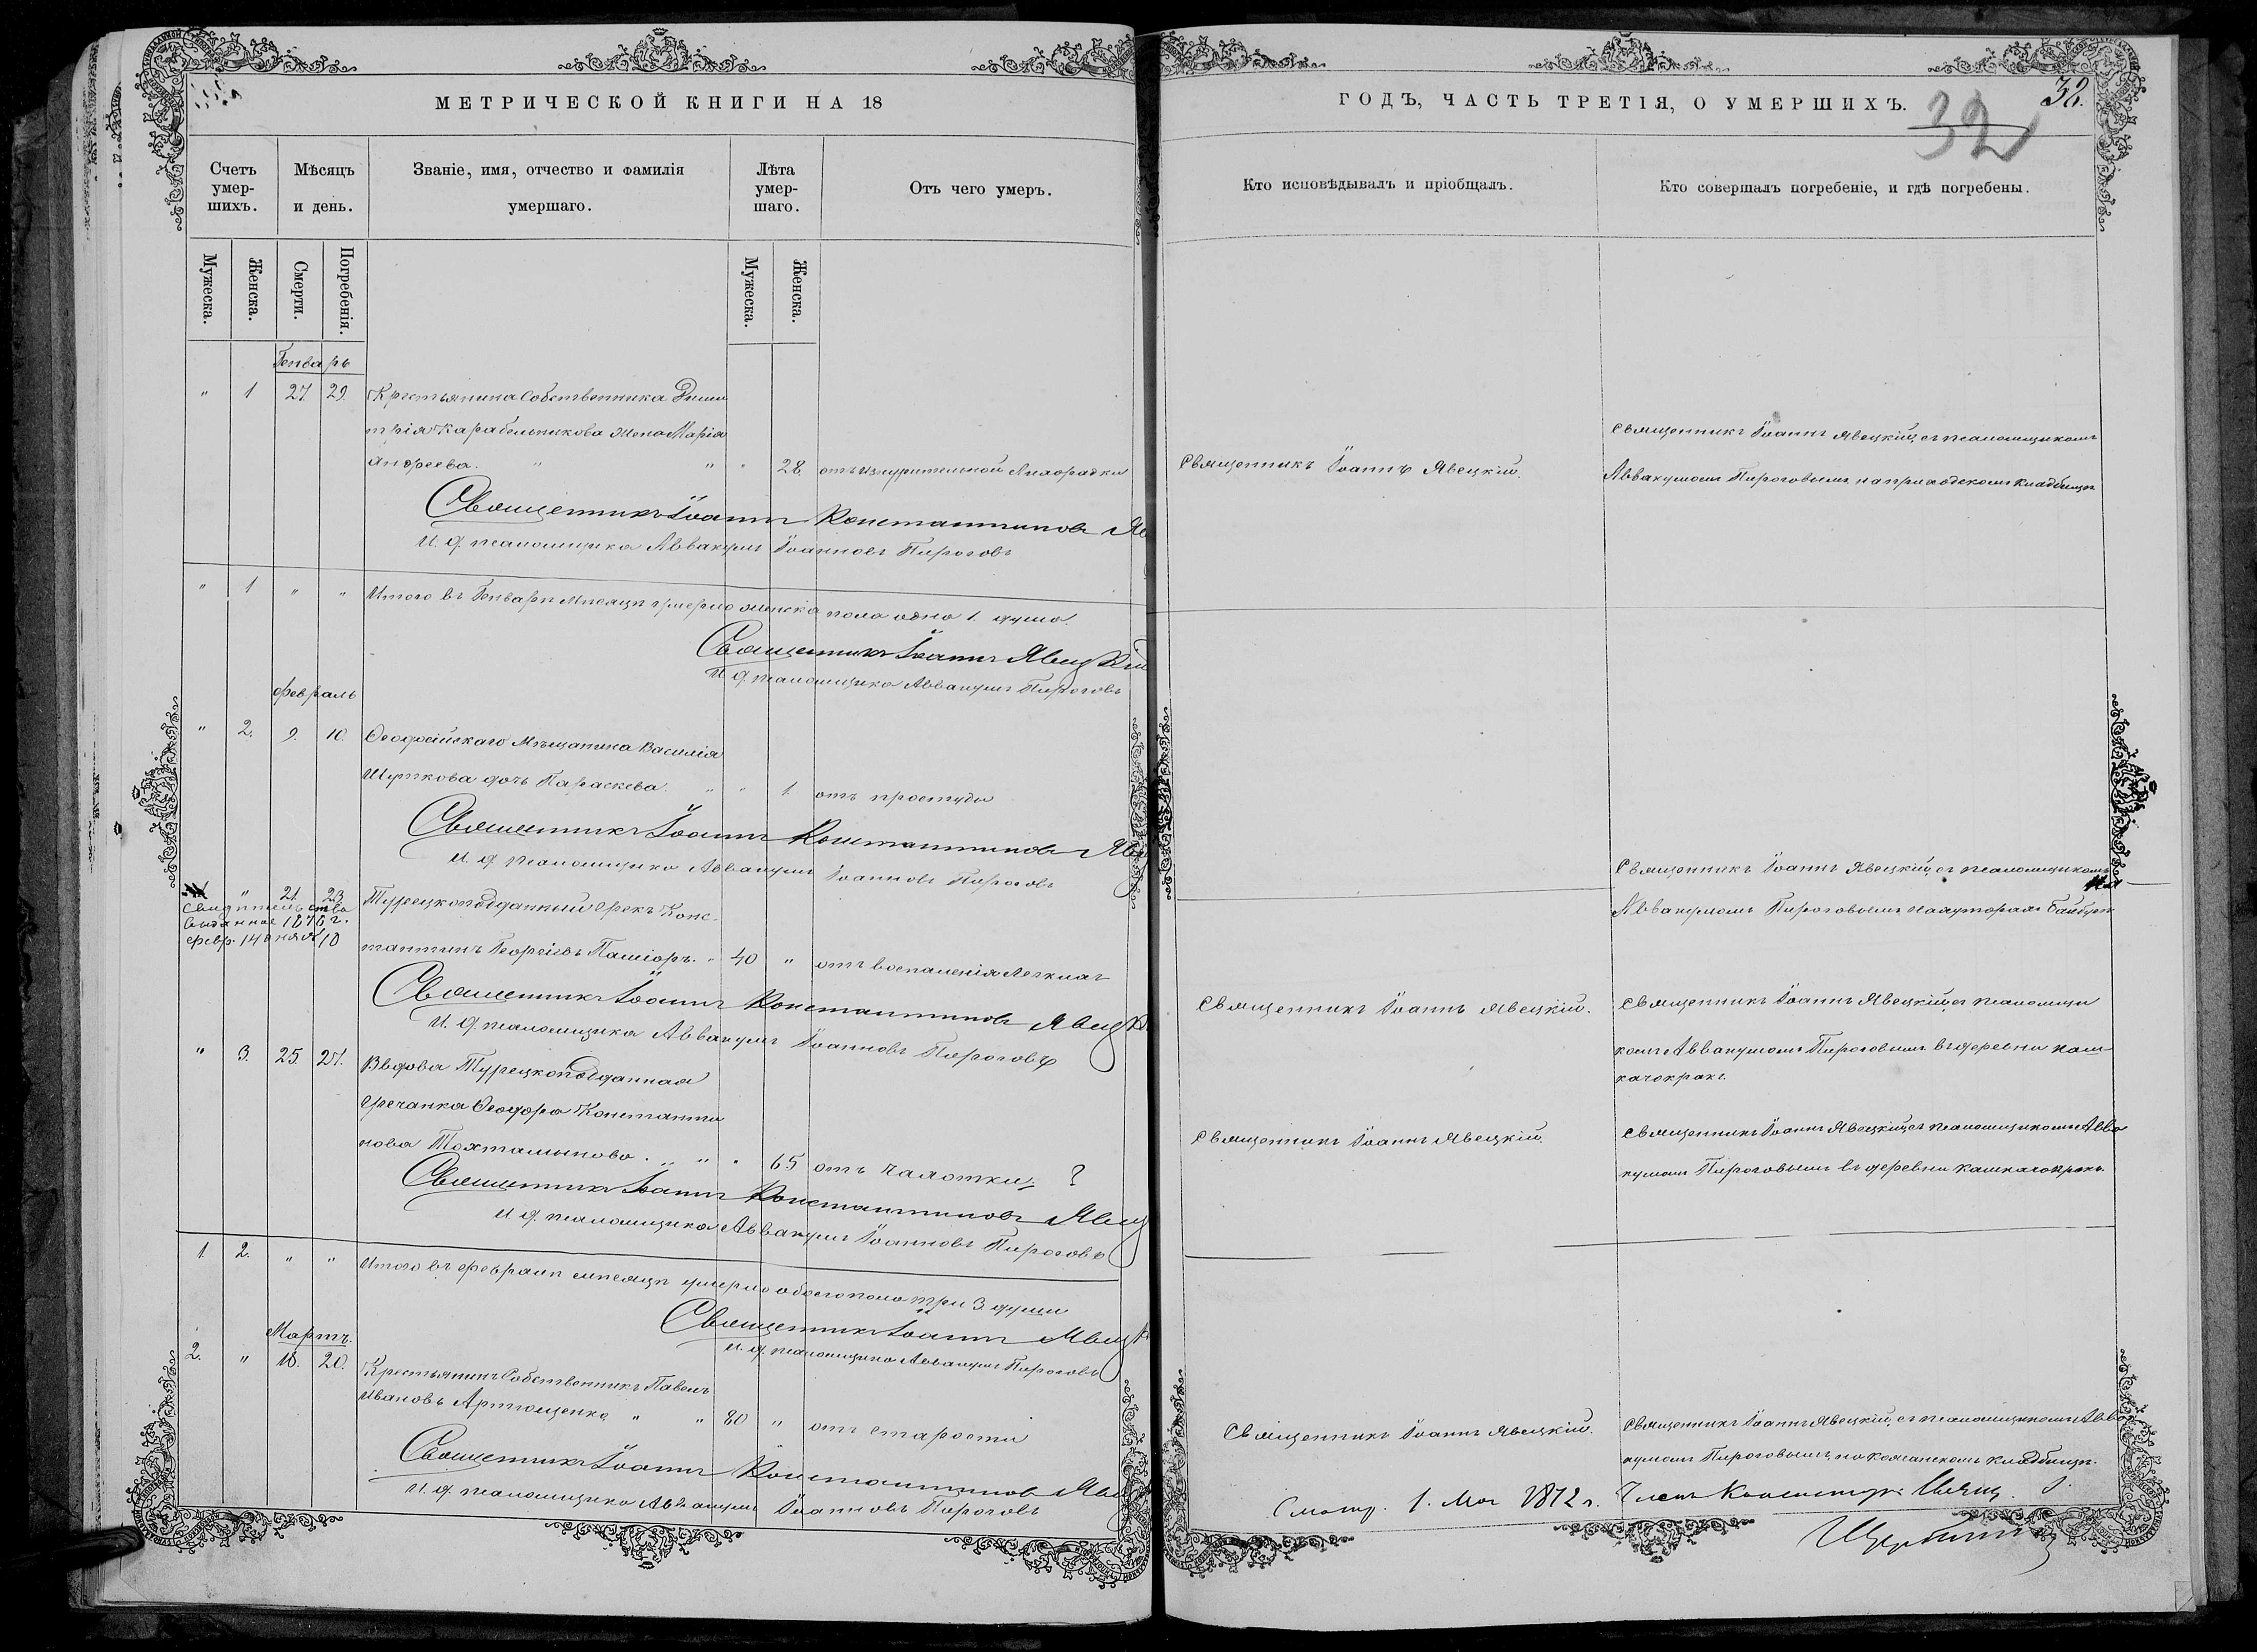 МЕТРИЧЕСКОЙ КНИГИ НА 18
Счетъ умер-шихъ.
Мѣсяцъ и день.
Званіе, имя, отчество и фамилія умершаго.
Лѣта умер-шаго.
Отъ чего умеръ.
Мужеска.
Женска.
Смерти.
Погребенія.
Мужеска.
Женска.
Генварь
" 1 27. 29. Крестьянина Собственника Дими
трія Карабельникова жена Марія
Андреева. " " " 28. отъ изнурительной Лихорадки
Священникъ Іоаннъ Константиновъ
И. д. псаломщика Аввакумъ Іоанновъ Пироговъ
" 1 " " Итого въ Генварѣ мѣсяцѣ умерло женска пола одна 1. душа.
Священникъ Іоаннъ Явецкій
И. д. псаломщика Аввакумъ Пироговъ
Февраль
" 2. 9. 10. Ѳеодосійскаго Мѣщанина Василія
дочь Параскева. " " 1. отъ простуды
Священникъ Іоаннъ Константиновъ
И. д. псаломщика Аввакумъ Іоанновъ Пироговъ
" 21. 23. Турецкоподданный Грекъ Конс-
Свидѣтельство
выданное 1876 г.
февр. 14 дня № 10
тантинъ Георгіевъ " 40 " отъ воспаленія легкихъ
Священникъ Іоаннъ Константиновъ
И. д. псаломщика Аввакумъ Іоанновъ Пироговъ
" 3. 25. 27. Вдова Турецкоподданная
Гречанка Ѳеодора Константи
нова Тохтамышова. " " " 65 отъ чахотки ?
Священникъ Іоаннъ Константиновъ
И. д. псаломщика Аввакумъ Іоанновъ Пироговъ
1. 2. " " Итого въ Февралѣ мѣсяцѣ умерло обоего пола три 3. души
Священникъ Іоаннъ
И. д. псаломщика Аввакумъ Пироговъ
Мартъ.
2. " 18. 20. Крестьянинъ Собственникъ Павелъ
Ивановъ Артющенко " " 80 " отъ старости
Священникъ Іоаннъ Константиновъ
И. д. псаломщика Аввакумъ Іоанновъ Пироговъ
ГОДЪ, ЧАСТЬ ТРЕТІЯ, О УМЕРШИХЪ.
32
32.
Кто исповѣдывалъ и пріобщалъ.
Кто совершалъ погребеніе, и гдѣ погребены.
Священникъ Іоаннъ Явецкій.
Священникъ Іоаннъ Явецкій съ псаломщикомъ
Аввакумомъ Пироговымъ на кладбищѣ
Священникъ Іоаннъ Явецкій съ псаломщикомъ
Аввакумомъ Пироговымъ
Священникъ Іоаннъ Явецкій.
Священникъ Іоаннъ Явецкій съ псаломщи
комъ Аввакумомъ Пироговымъ въ деревни каш-
качокракъ.
Священникъ Іоаннъ Явецкій
Священникъ Іоаннъ Явецкій съ псаломщикомъ Авва
кумомъ Пироговымъ въ деревни кашкачокракъ.
Священникъ Іоаннъ Явецкій.
Священникъ Іоаннъ Явецкій, съ псаломщикомъ Авва
кумомъ Пироговымъ, на кладбищѣ.
1. Мая 1872 г.